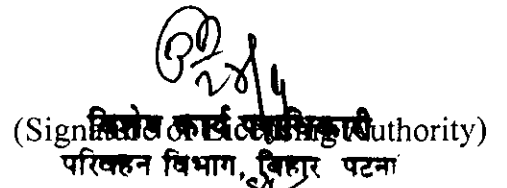 28/4
(Signature of Licensing Authority)
विशेष कार्य पदाधिकारी
परिवहन विभाग, बिहार पटना